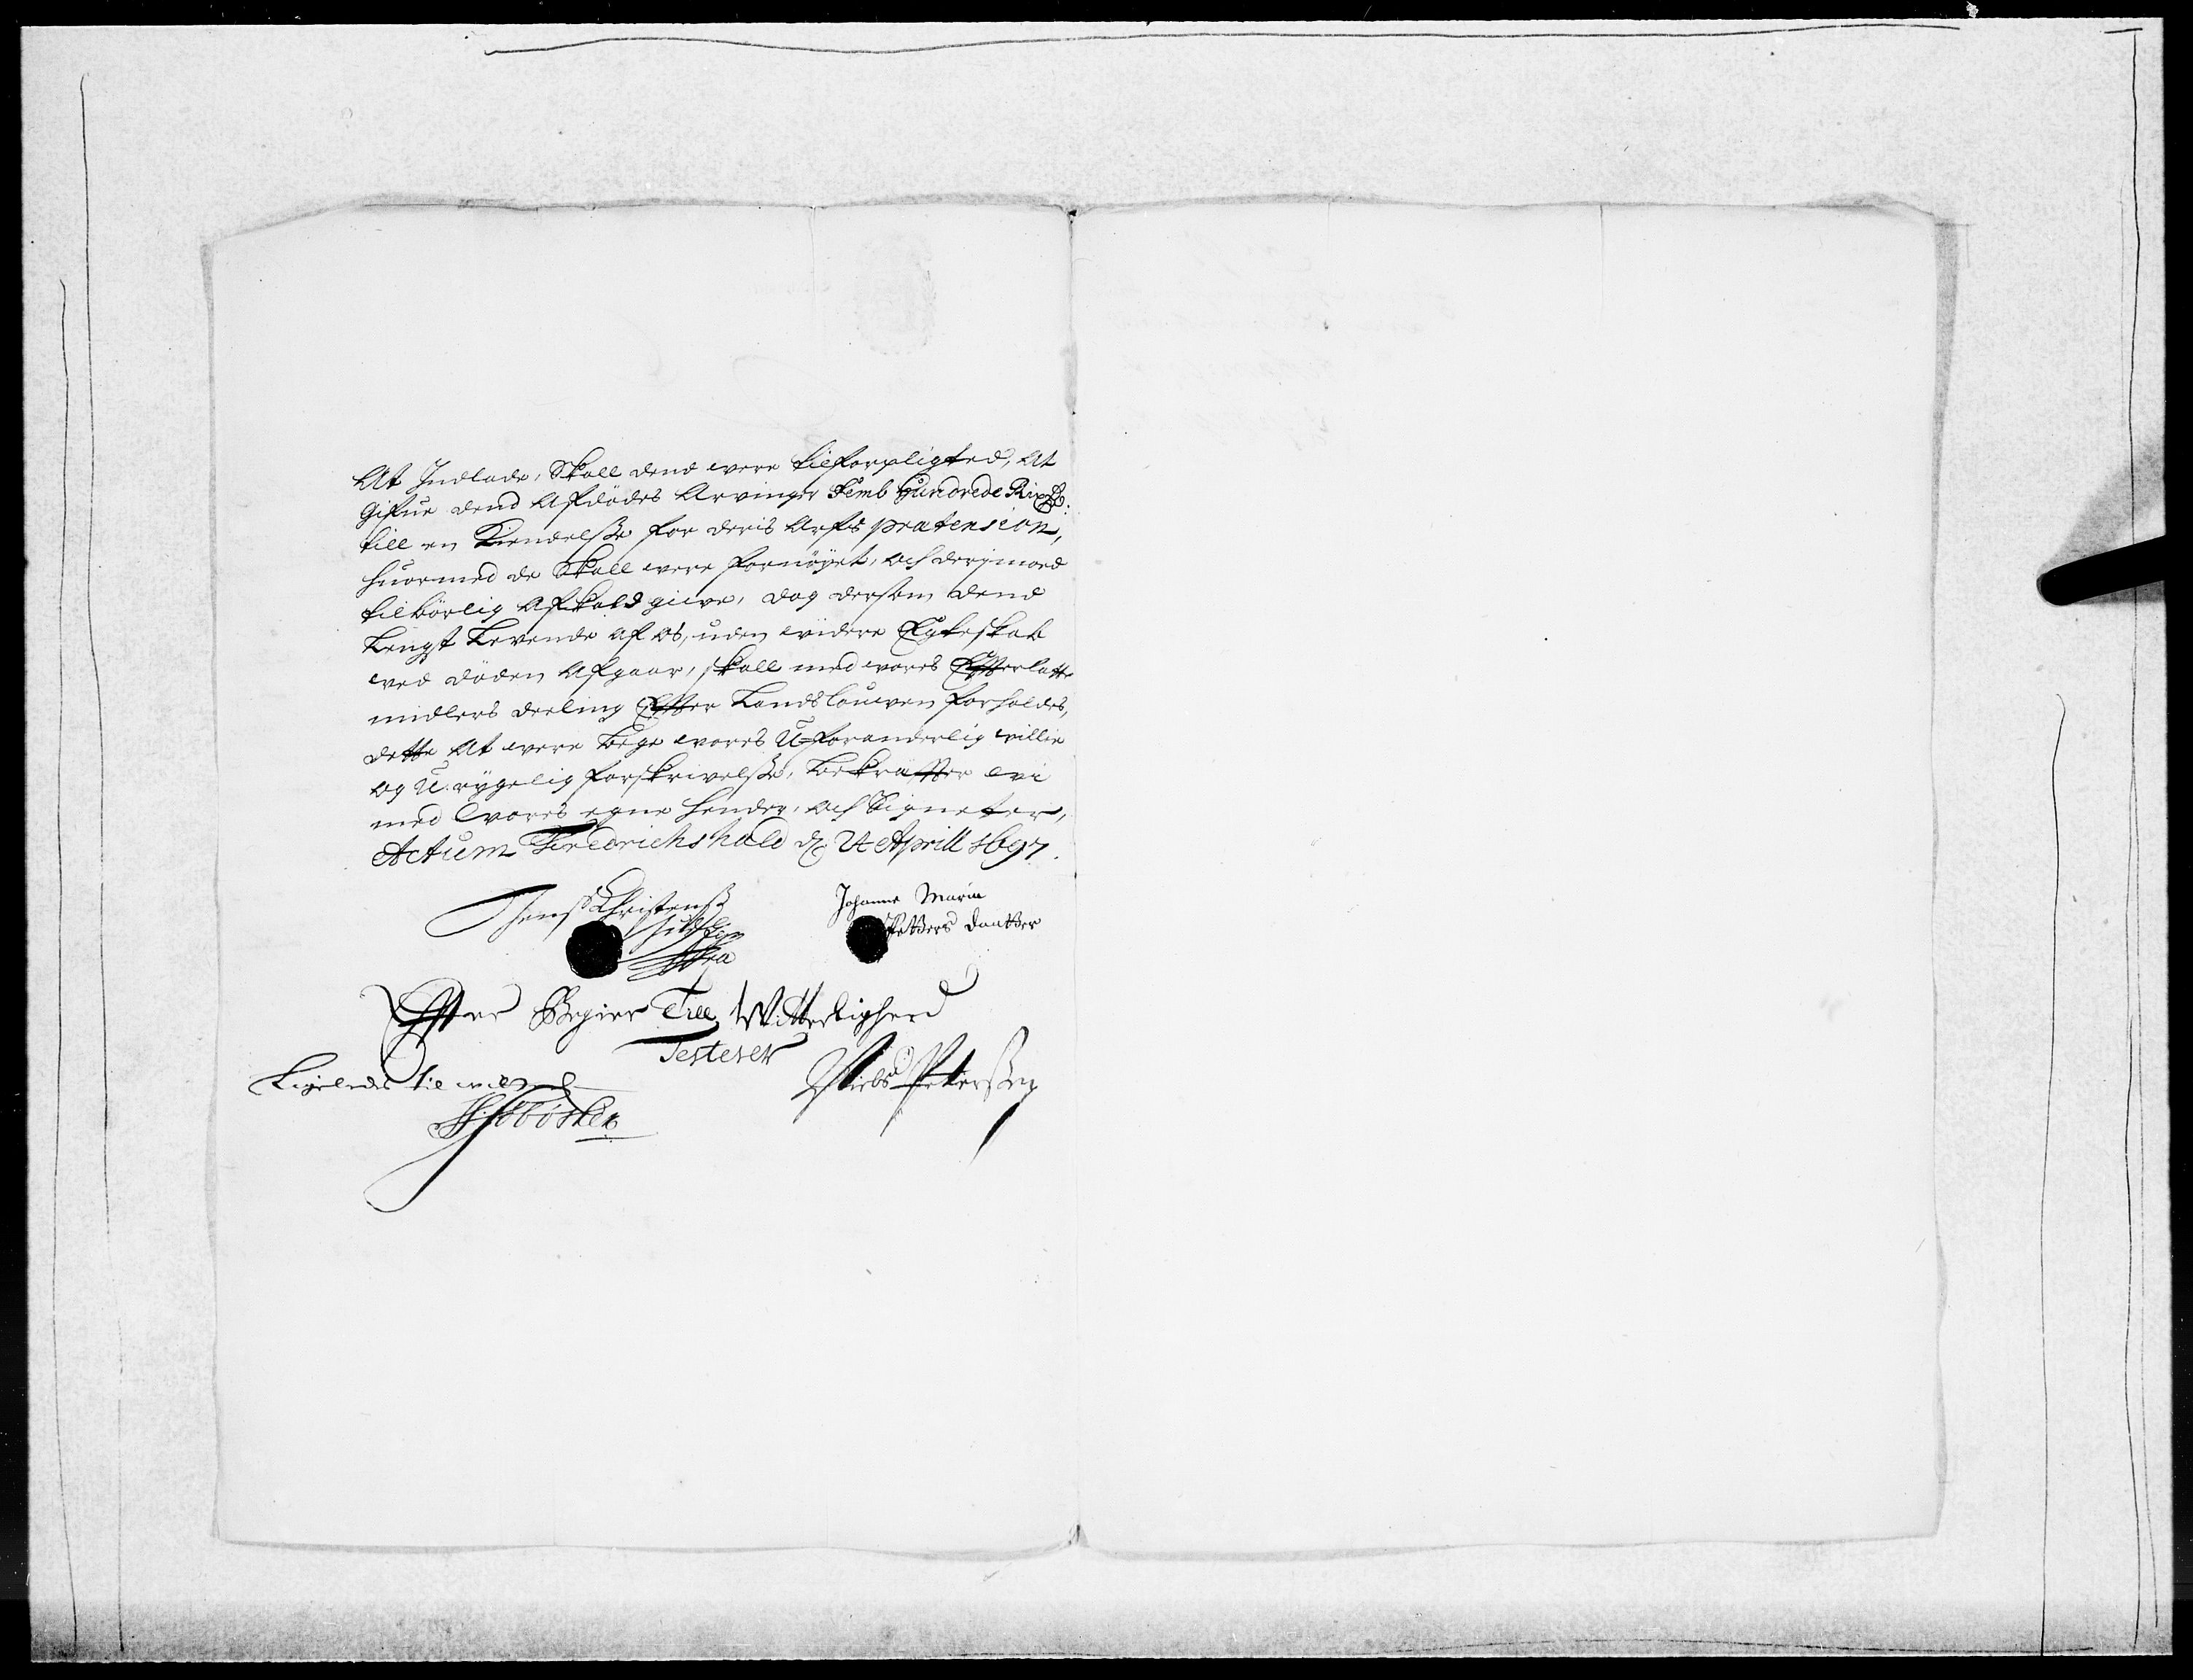 At Indlade, Skall dend were tilforpligted, At
Gifue dend Afdödes Arvinger Femb Hundrede Rixdr:
till en Kiendelsse for deris Arfs prætension,
huormed de Skall were fornöyet, och derimod
tilbörlig Afkald give, dog dersom dend
Lengst Levende af os, uden widere Egteskab
wed döden Afgaar, skall med wores Effterlatte
midlers deeling Effter Landslouwen forholdes,
dette At were bege wores U-foranderlig willie
og U-rygelig forskrivelsse, bekræffter wi
med wores egne hender, och Signeter,
Actum Fredrichshald d. 24 Aprill 1697.
Jens Christenss Johanne Maria
Petters daatter
Effter Begier Till Witterlighed
Testerer
Ligeledes til
Niels Peterssen